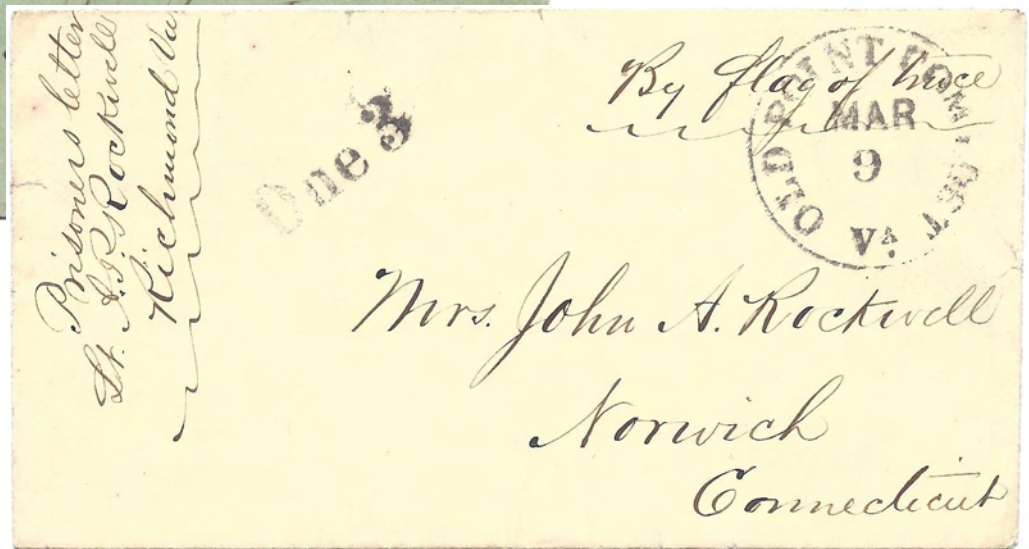 Prisoners letter
Lt. A. P. Rockwell
Richmond Va
Due 3
By flag of truce
OLD POINT COMFORT
MAR
9
VA
Mrs. John A. Rockwell
Norwich
Connecticut